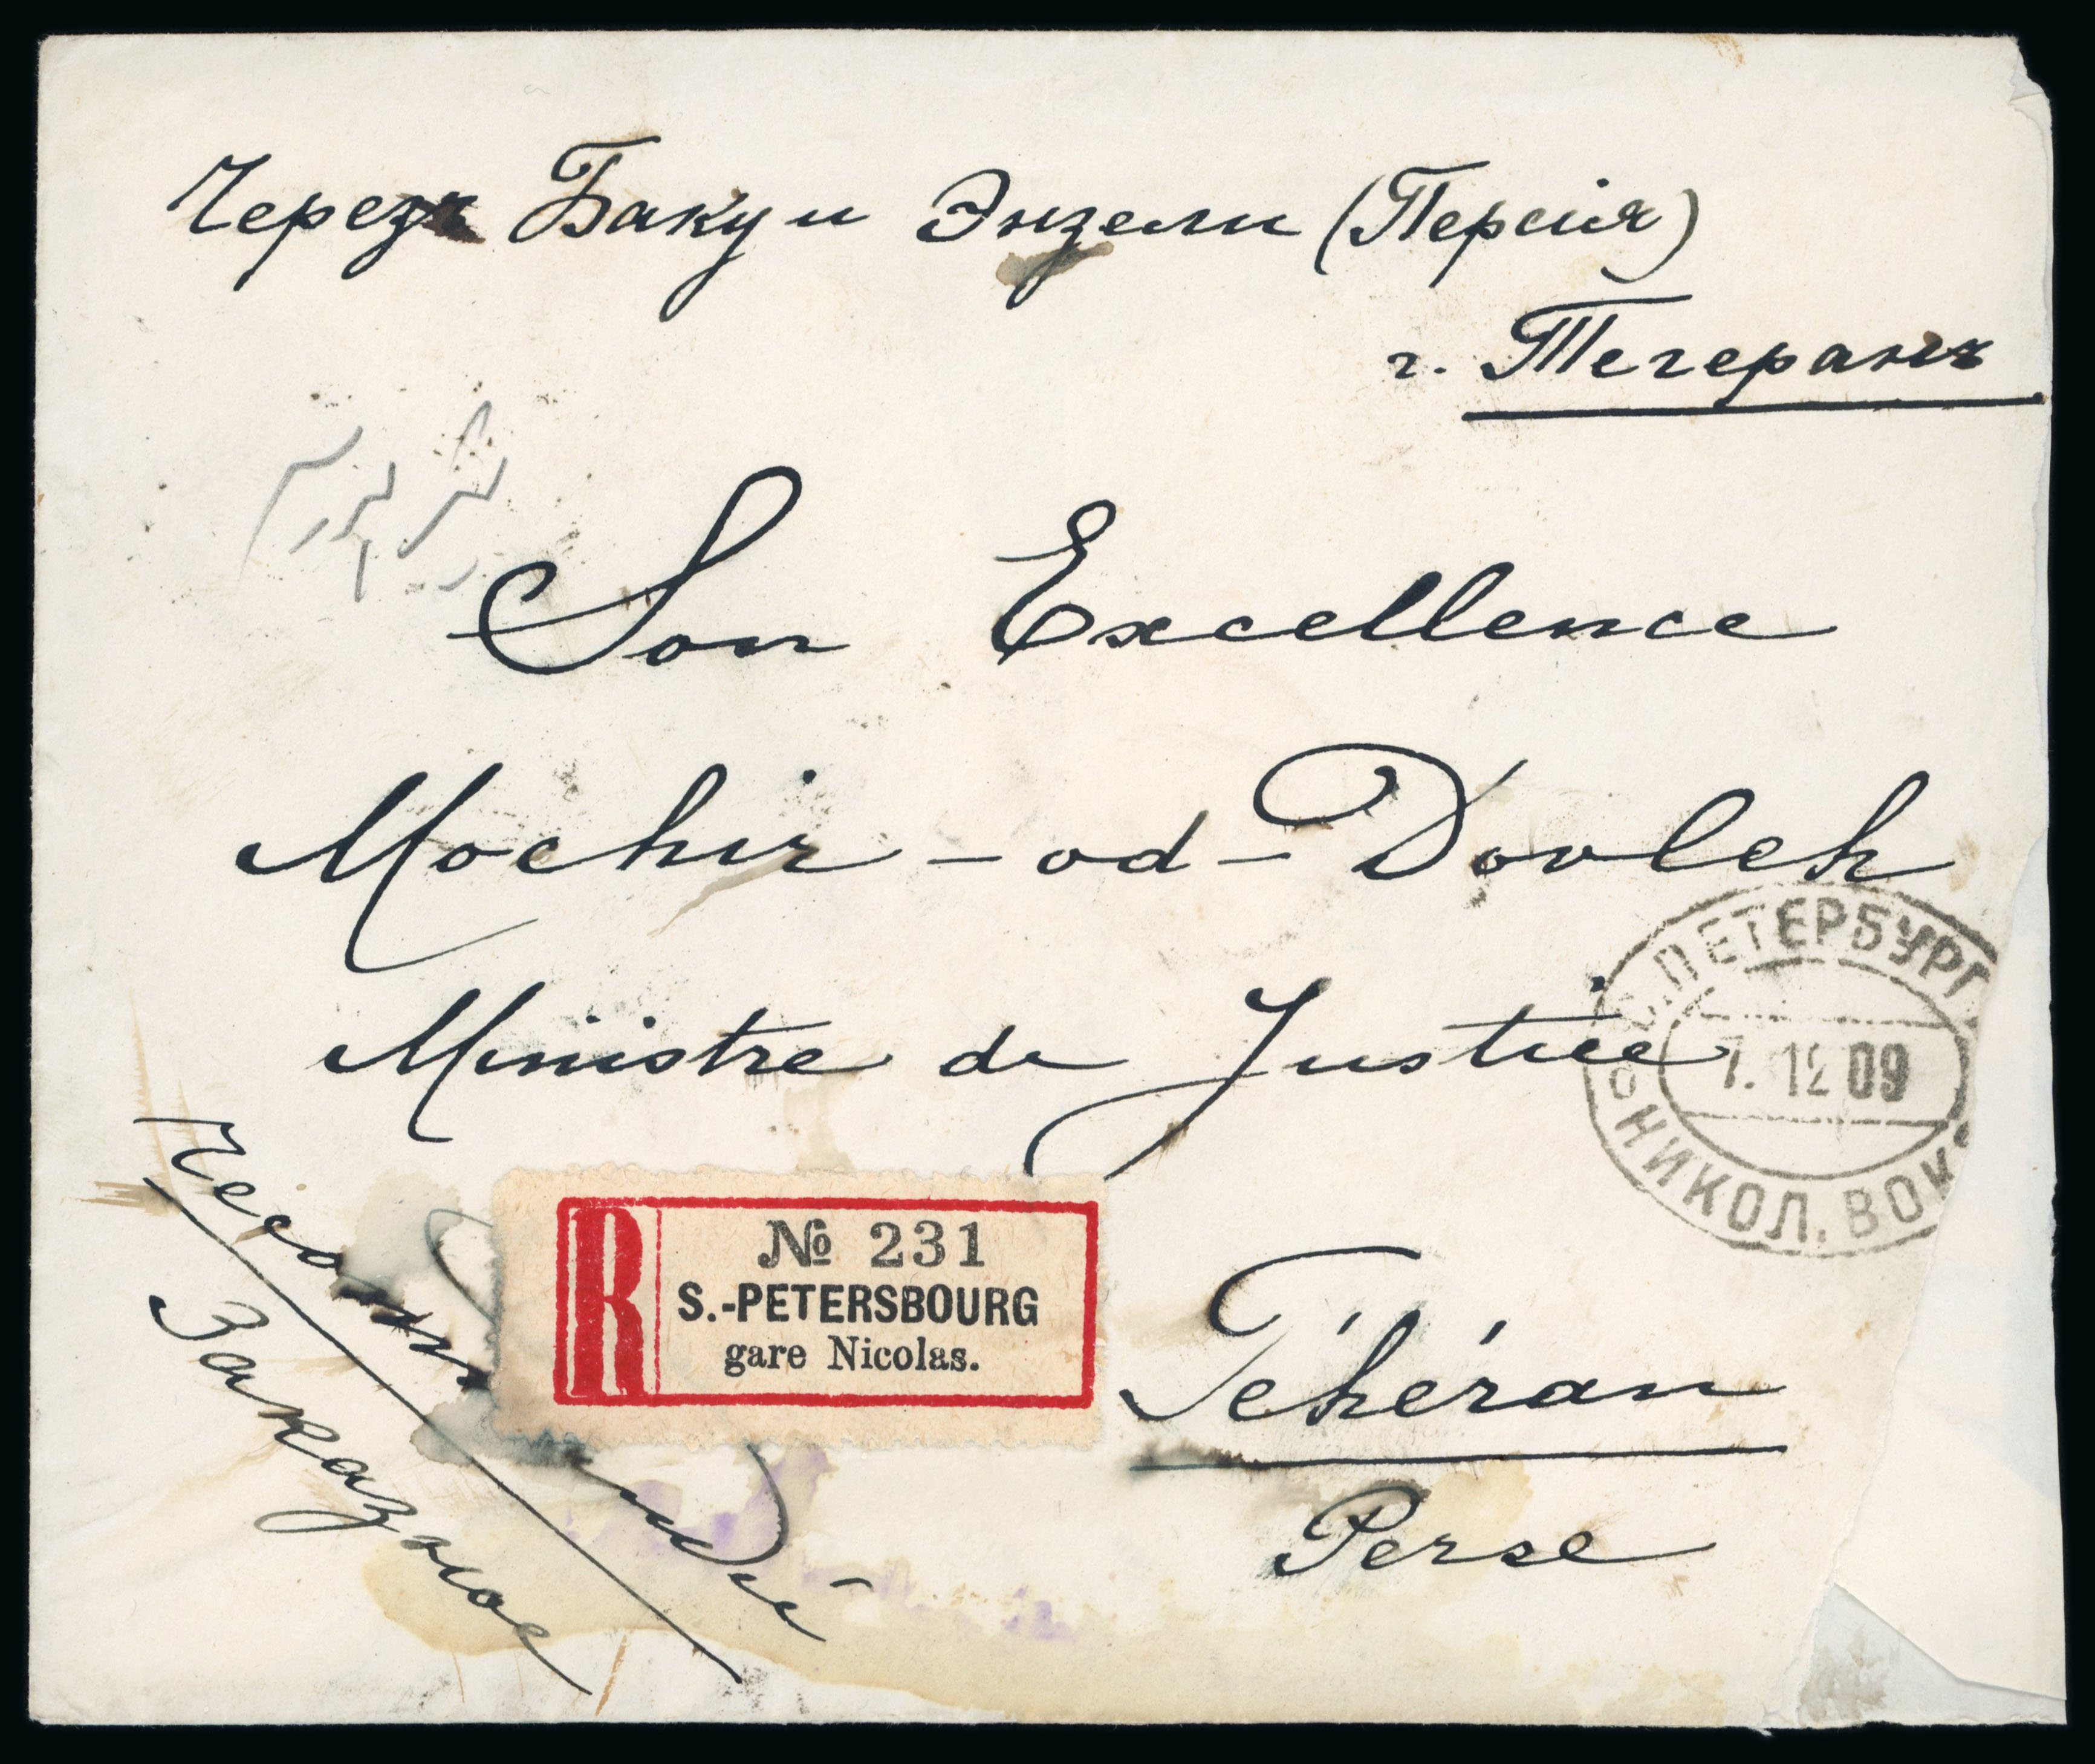 Черезъ Баку и Энзели (Персія)
г. Тегеранъ
Son Excellence
Mochir-od-Dovleh
Ministre de Justice
С.ПЕТЕРБУРГ
7.12 09
НИКОЛ. ВОК
№ 231
R S.-PETERSBOURG
gare Nicolas.
Téhéran
Perse
Заказное